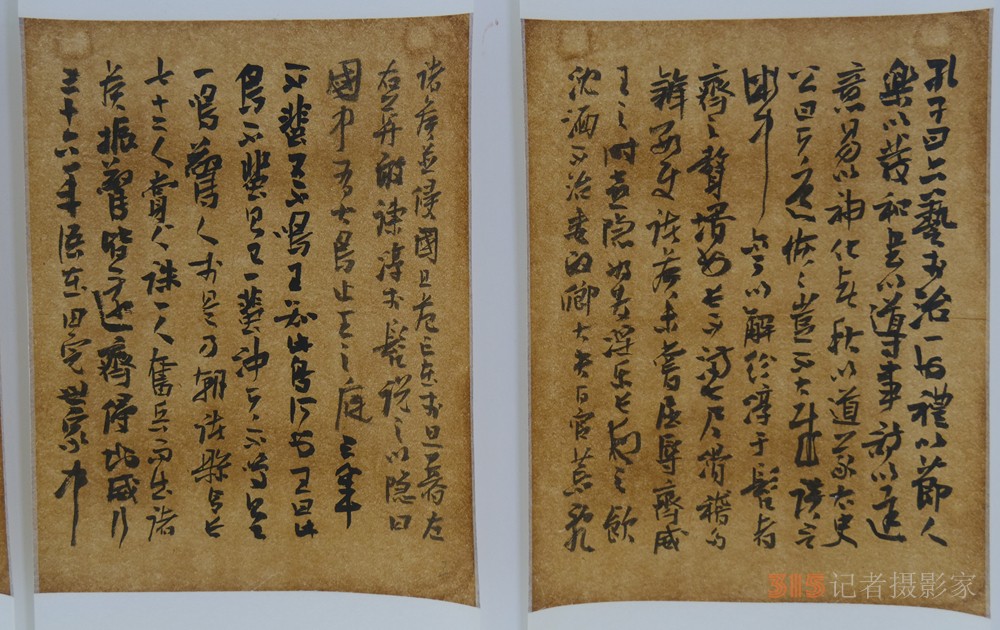 孔子曰六藝於治一也禮以節人
樂以發和書以導事詩以達
意易以神化春秋以道義太史
公曰天道恢々豈不大哉談言
微中亦可以解紛淳于髡者
齊之贅壻也長不滿七尺滑稽多
辯數使諸侯未嘗屈辱齊威
王之時喜隱好為淫樂長夜之飲
沈湎不治委政卿大夫百官荒亂
諸侯並侵國且危亡在於旦暮左
右莫敢諫淳于髡說之以隱曰
國中有大鳥止王之庭三年
不蜚又不鳴王知此鳥何也王曰此
鳥不蜚則已一蜚沖天不鳴則已
一鳴驚人於是乃朝諸縣令長
七十二人賞一人誅一人奮兵而出諸
侯振驚皆還齊侵地威行
三十六年語在田完世家中
315记者摄影家